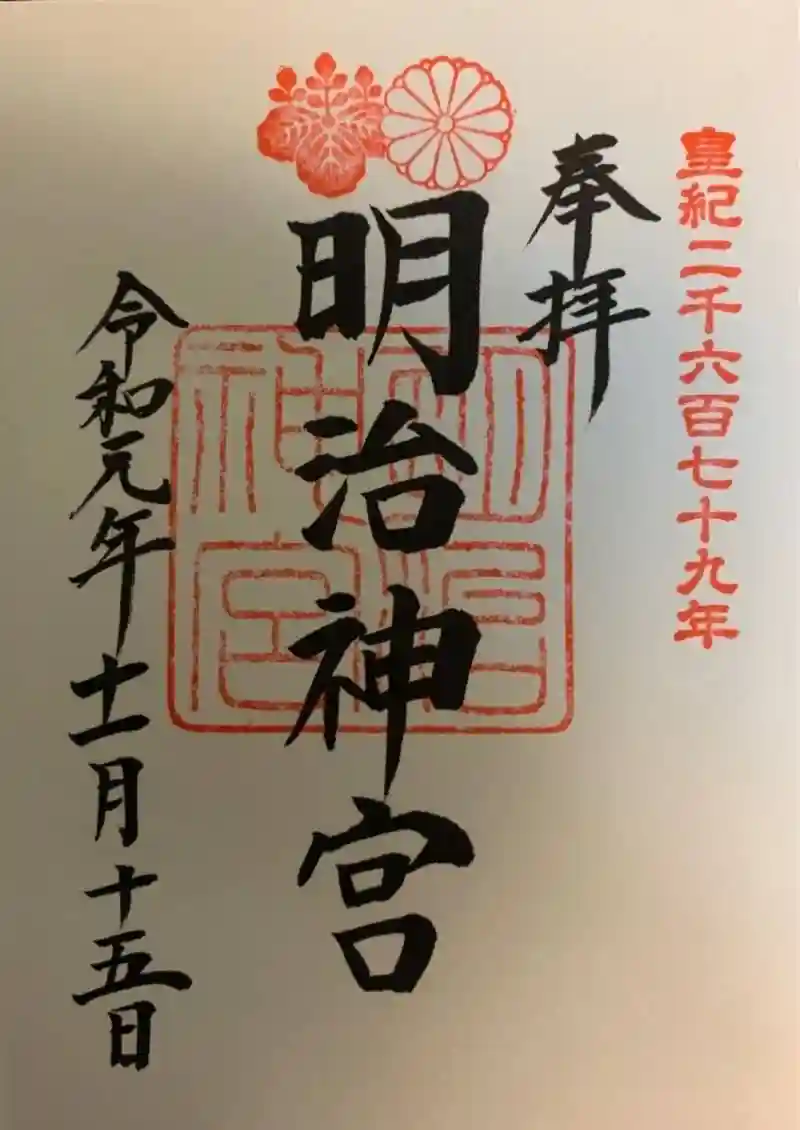 皇紀二千六百七十九年
奉拝
明治神宮
明治神宮
令和元年十一月十五日